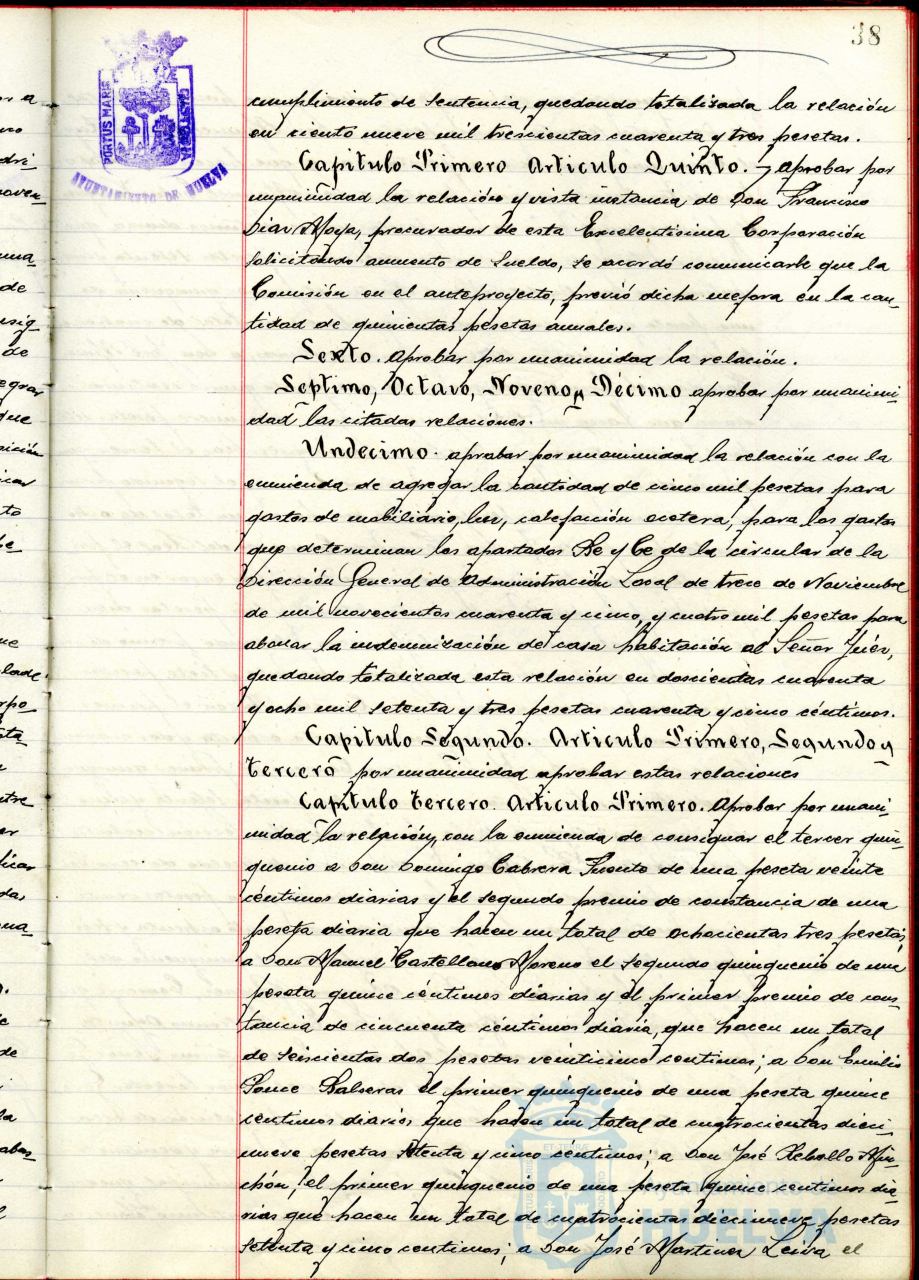 38
PORTUS MARIS
AYUNTAMIENTO DE HUELVA
cumplimiento de sentencia, quedando totalizada la relación
en ciento nueve mil trescientas cuarenta y tres pesetas.
Capitulo Primero Articulo Quinto. - aprobar por
unanimidad la relación y vista instancia de Don Francisco
Diaz Moya, procurador de esta Excelentisima Corporación
solicitando aumento de sueldo, se acordó comunicarle que la
Comisión en el anteproyecto, previó dicha mejora en la can-
tidad de quinientas pesetas anuales.
Sexto. aprobar por unanimidad la relación.
Septimo, Octavo, Noveno y Décimo aprobar por unanimi-
dad las citadas relaciones.
Undecimo. aprobar por unanimidad la relación con la
enmienda de agregar la cantidad de cinco mil pesetas para
gastos de mobiliario, luz, calefacción ecetera, para los gastos
que determinan los apartados Be y Ce de la circular de la
Dirección General de Administración Local de trece de Noviembre
de mil novecientos cuarenta y cinco, y cuatro mil pesetas para
abonar la indemnización de casa habitación al Señor Juéz,
quedando totalizada esta relación en doscientas cuarenta
y ocho mil setenta y tres pesetas cuarenta y cinco céntimos.
Capitulo Segundo. Articulo Primero, Segundo y
tercero por unanimidad aprobar estas relaciones
Capitulo tercero. Articulo Primero. Aprobar por unani-
midad la relación, con la enmienda de consignar el tercer quin-
quenio a Don Domingo Cabrera Puento de una peseta veinte
céntimos diarias y el segundo premio de constancia de una
peseta diaria que hacen un total de ochocientas tres pesetas,
a Don Manuel Castellano Moreno el segundo quinquenio de una
peseta quince céntimos diarias y el primer premio de cons-
tancia de cincuenta céntimos diaria, que hacen un total
de seiscientas dos pesetas veinticinco centimos; a Don Emilio
Ponce Balseras el primer quinquenio de una peseta quince
centimos diarios que hacen un total de cuatrocientas dieci-
nueve pesetas setenta y cinco céntimos; a Don José Rebollo Min-
chón, el primer quinquenio de una peseta quince centimos dia-
rias que hacen un total de cuatrocientas diecinueve pesetas
setenta y cinco centimos; a Don José Martinez Leiva el
HUELVA